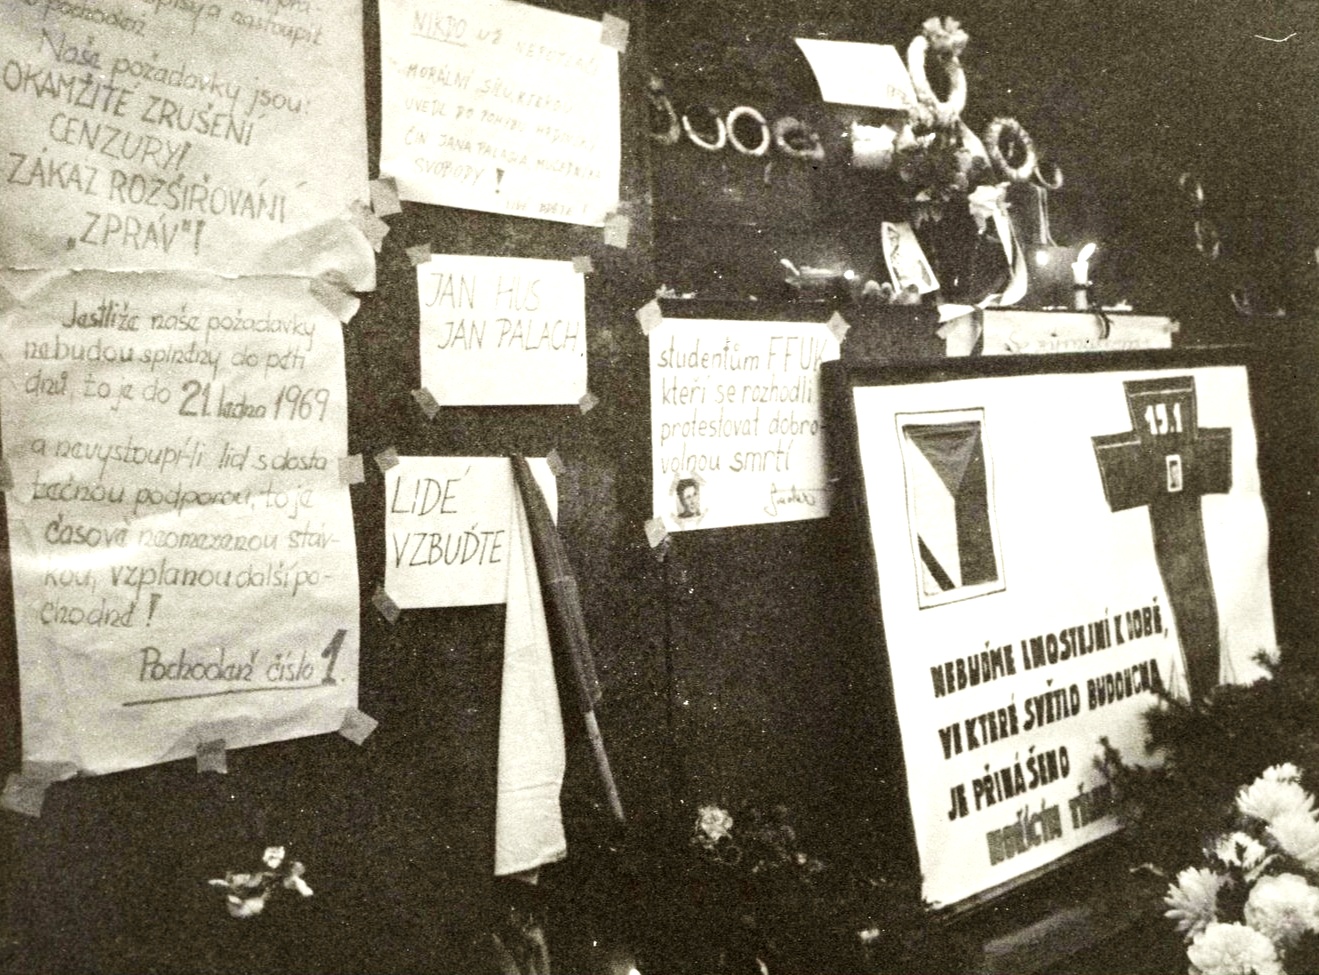 zápisy a nastoupit
Naše požadavky jsou:
OKAMŽITÉ ZRUŠENÍ
CENZURY!
ZÁKAZ ROZŠIŘOVÁNÍ
„ZPRÁV"!
Jestliže naše požadavky
nebudou splněny do pěti
dnů, to je do 21. ledna 1969
a nevystoupí-li lid s dosta
tečnou podporou, to je
časově neomezenou stáv-
kou, vzplanou další po-
chodně!
Pochodeň číslo 1.
NIKDO UŽ
MORÁLNÍ SÍLU, KTEROU
UVEDL DO POHYBU
ČIN JANA PALACHA MUČEDNÍKA
SVOBODY!
JAN HUS
JAN PALACH.
LIDÉ
VZBUĎTE
studentům FFUK
kteří se rozhodli
protestovat dobro-
volnou smrtí
15.1
NEBUĎME LHOSTEJNÍ K DOBĚ,
VE KTERÉ SVĚTLO BUDOUCNA
JE PŘINÁŠENO
HOŘÍCÍM